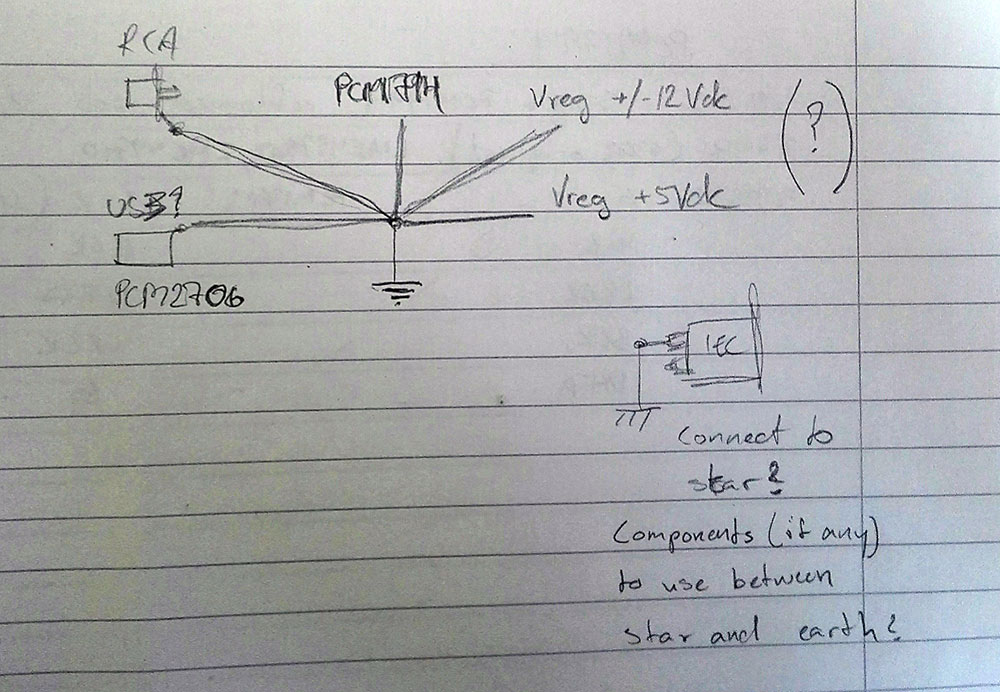 RCA
PCM1794
Vreg +/-12Vdc
(?)
USB?
Vreg +5Vdc
PCM2706
IEC
Connect to
star?
Components (if any)
to use between
star and earth?